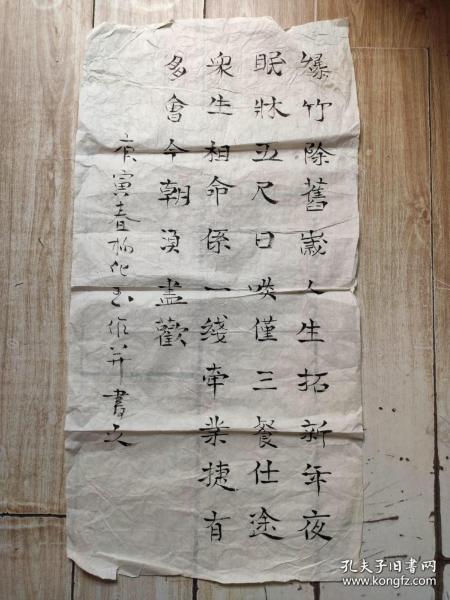 爆竹除舊歲人生拓新年夜
眠牀五尺日啖僅三餐仕途
衆生相命係一线牵業捷有
多會今朝須盡歡
庚寅春柏化書作并書之
孔夫子旧书网
www.kongfz.com